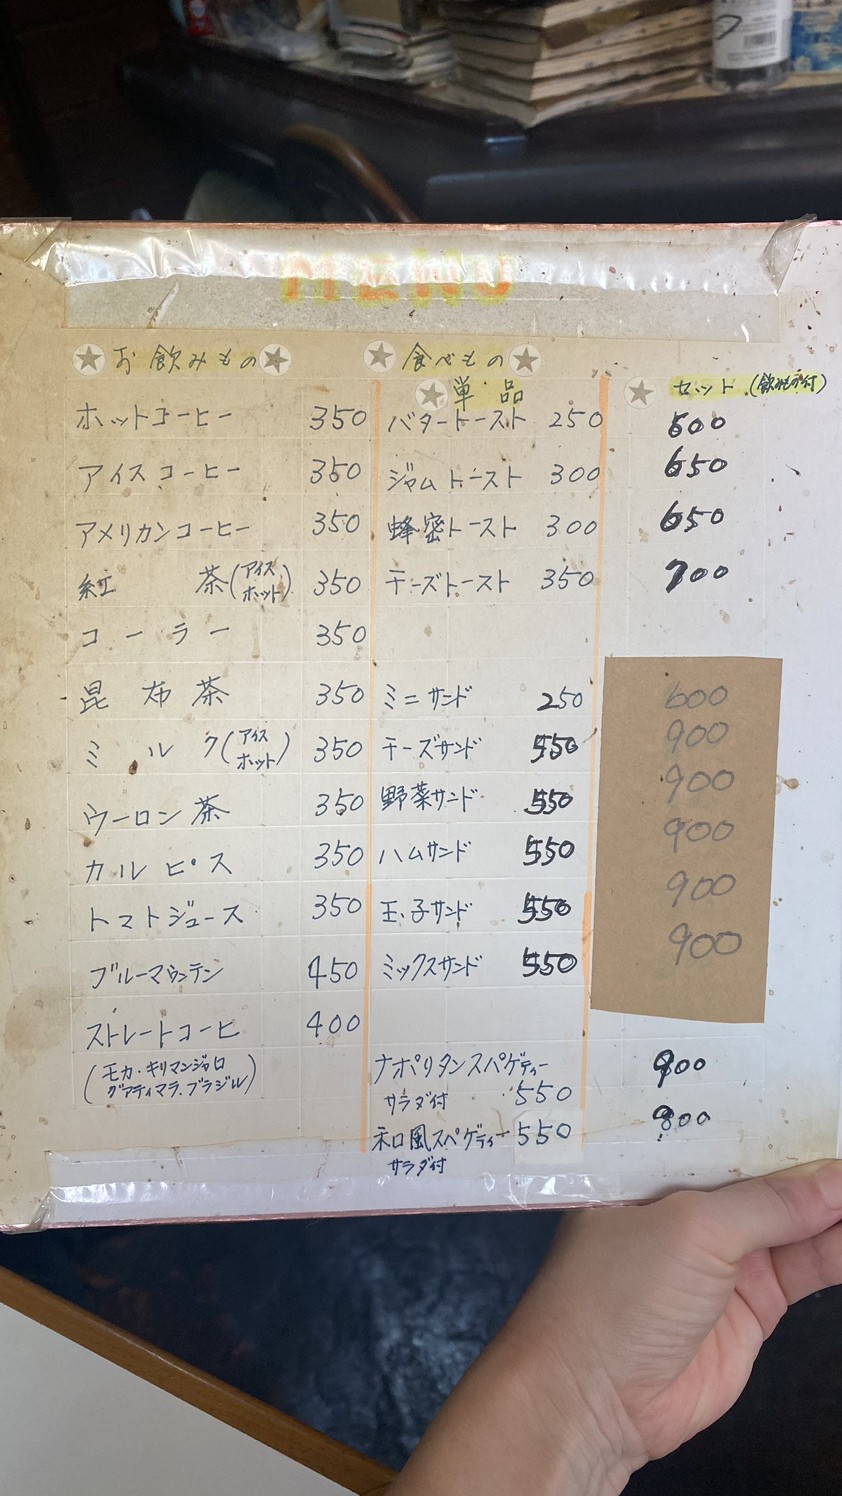 MENU
★お飲みもの★
ホットコーヒー 350
アイスコーヒー 350
アメリカンコーヒー 350
紅茶(アイス ホット) 350
コーラー 350
昆布茶 350
ミルク(アイス ホット) 350
ウーロン茶 350
カルピス 350
トマトジュース 350
ブルーマウンテン 450
ストレートコーヒ 400
(モカ・キリマンジャロ
グアティマラ.ブラジル)
★食べもの★
★単品 ★セット(飲みもの付)
バタートースト 250 600
ジャムトースト 300 650
蜂密トースト 300 650
チーズトースト 350 700
ミニサンド 250 600
チーズサンド 550 900
野菜サンド 550 900
ハムサンド 550 900
玉子サンド 550 900
ミックスサンド 550 900
ナポリタンスパゲティー 900
サラダ付 550
和風スペゲティー 550 900
サラダ付